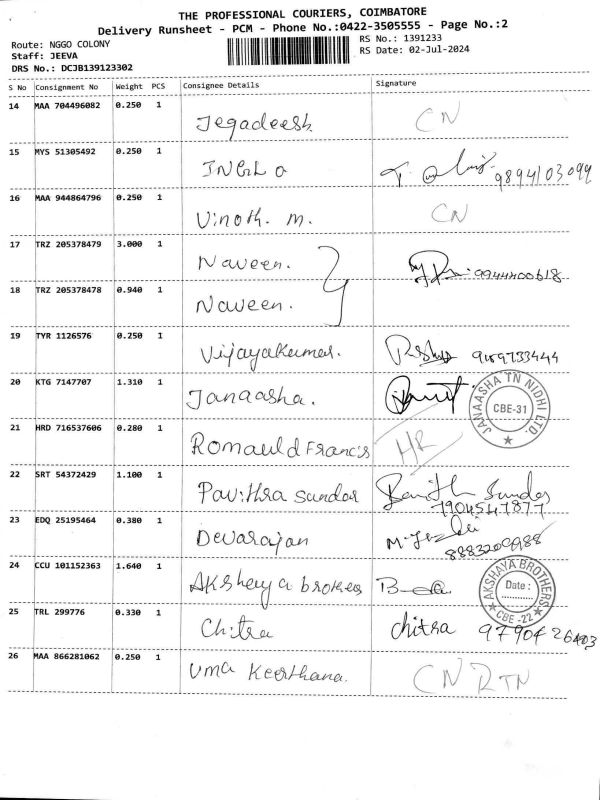 THE PROFESSIONAL COURIERS, COIMBATORE
Delivery Runsheet - PCM - Phone No.:0422-3505555 - Page No.:2
Route: NGGO COLONY
RS No.: 1391233
Staff: JEEVA
RS Date: 02-Jul-2024
DRS No.: DCJB139123302
S No Consignment No Weight PCS Consignee Details Signature
14 MAA 704496082 0.250 1 Jegadeesh CN
15 MYS 51305492 0.250 1 9894103099
16 MAA 944864796 0.250 1 Vinoth. M. CN
17 TRZ 205378479 3.000 1 Naveen. 9944400618
18 TRZ 205378478 0.940 1 Naveen.
19 TYR 1126576 0.250 1 Vijayakumar.
20 KTG 7147707 1.310 1 Janaasha.
JANAASHA TN NIDHI LTD.
CBE-31
21 HRD 716537606 0.280 1 Romauld Francis HR
22 SRT 54372429 1.100 1 Pavithra sundar
7904547877
23 EDQ 25195464 0.380 1 Devarajan
24 CCU 101152363 1.640 1 Akshaya brokers
AKSHAYA BROTHERS
Date :
CBE -22
25 TRL 299776 0.330 1 Chitra chitra
26 MAA 866281062 0.250 1 Uma Keerthana. CN RTN